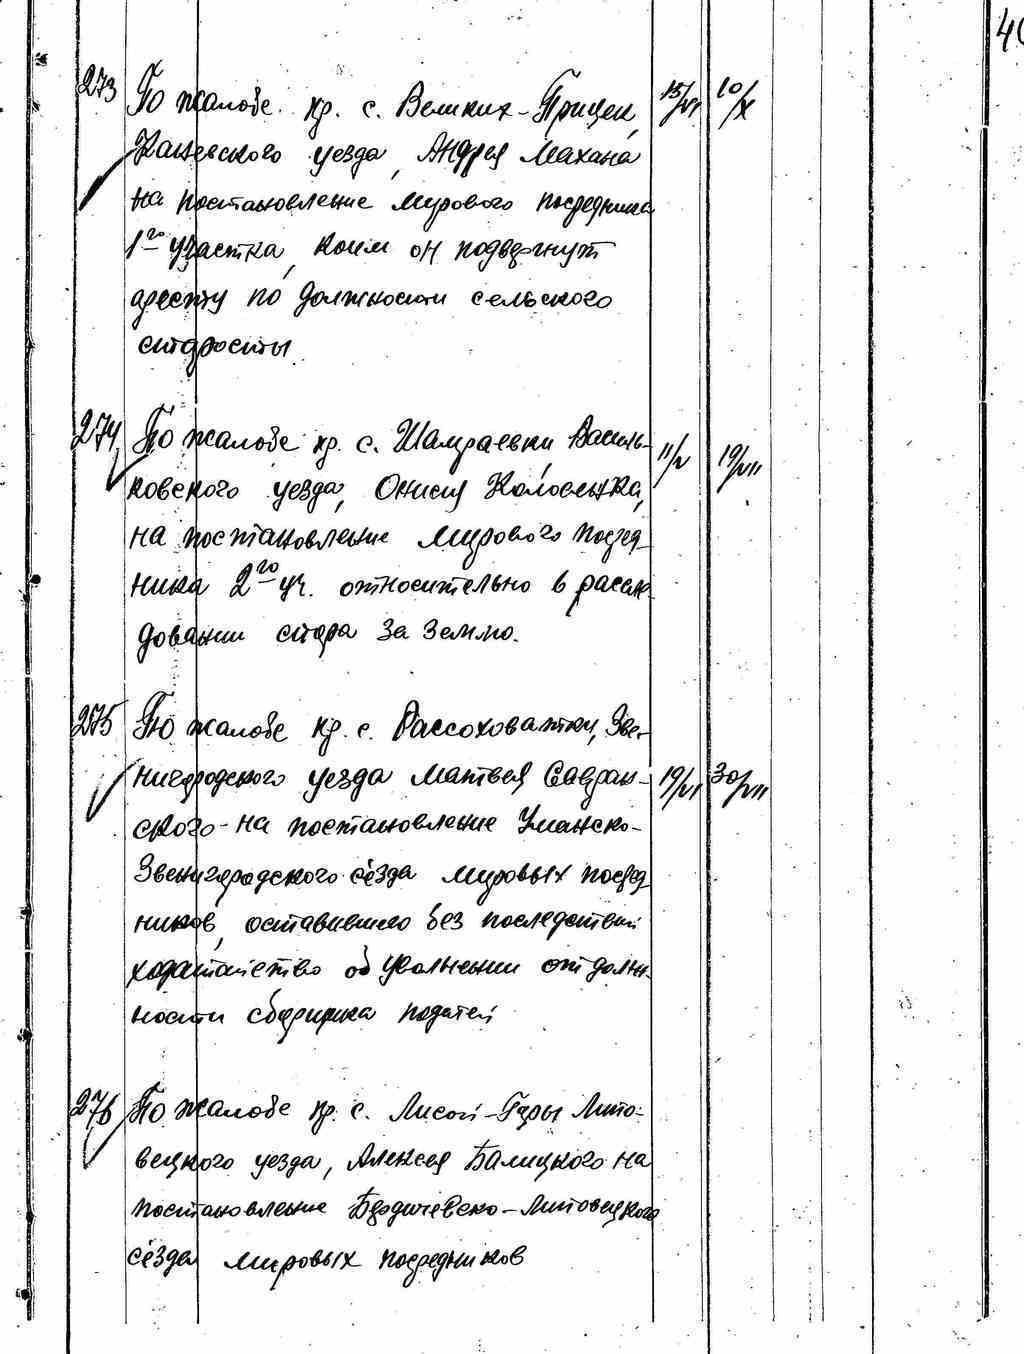 40
273 По жалобе кр. с. Великих-Прицек, 15/VI 10/X
Каневского уезда, Андрея Махана
на постановление мирового посредника
1го участка, коим он подвергнут
аресту по должности сельского
старосты
274 По жалобе кр. с. Шамраевки Василь- 11/V 19/VII
ковского уезда, Онисия
на постановление мирового посред-
ника 2го уч. относительно в рассле-
довании спора за землю.
275 По жалобе кр. с. Рассоховатки, Зве-
нигородского уезда Матвея Савран- 19/VI 30/VII
ского - на постановление Уманско-
Звенигородского сезда мировых посред
ников, оставившего без последствий
ходатайство об увольнении от долж-
ности сборщика податей
276 По жалобе кр. с. Лисой-Горы Липо-
вецкого уезда, Алексея Балицкого на
постановление Бердичевско-Липовецкого
сезда мировых посредников